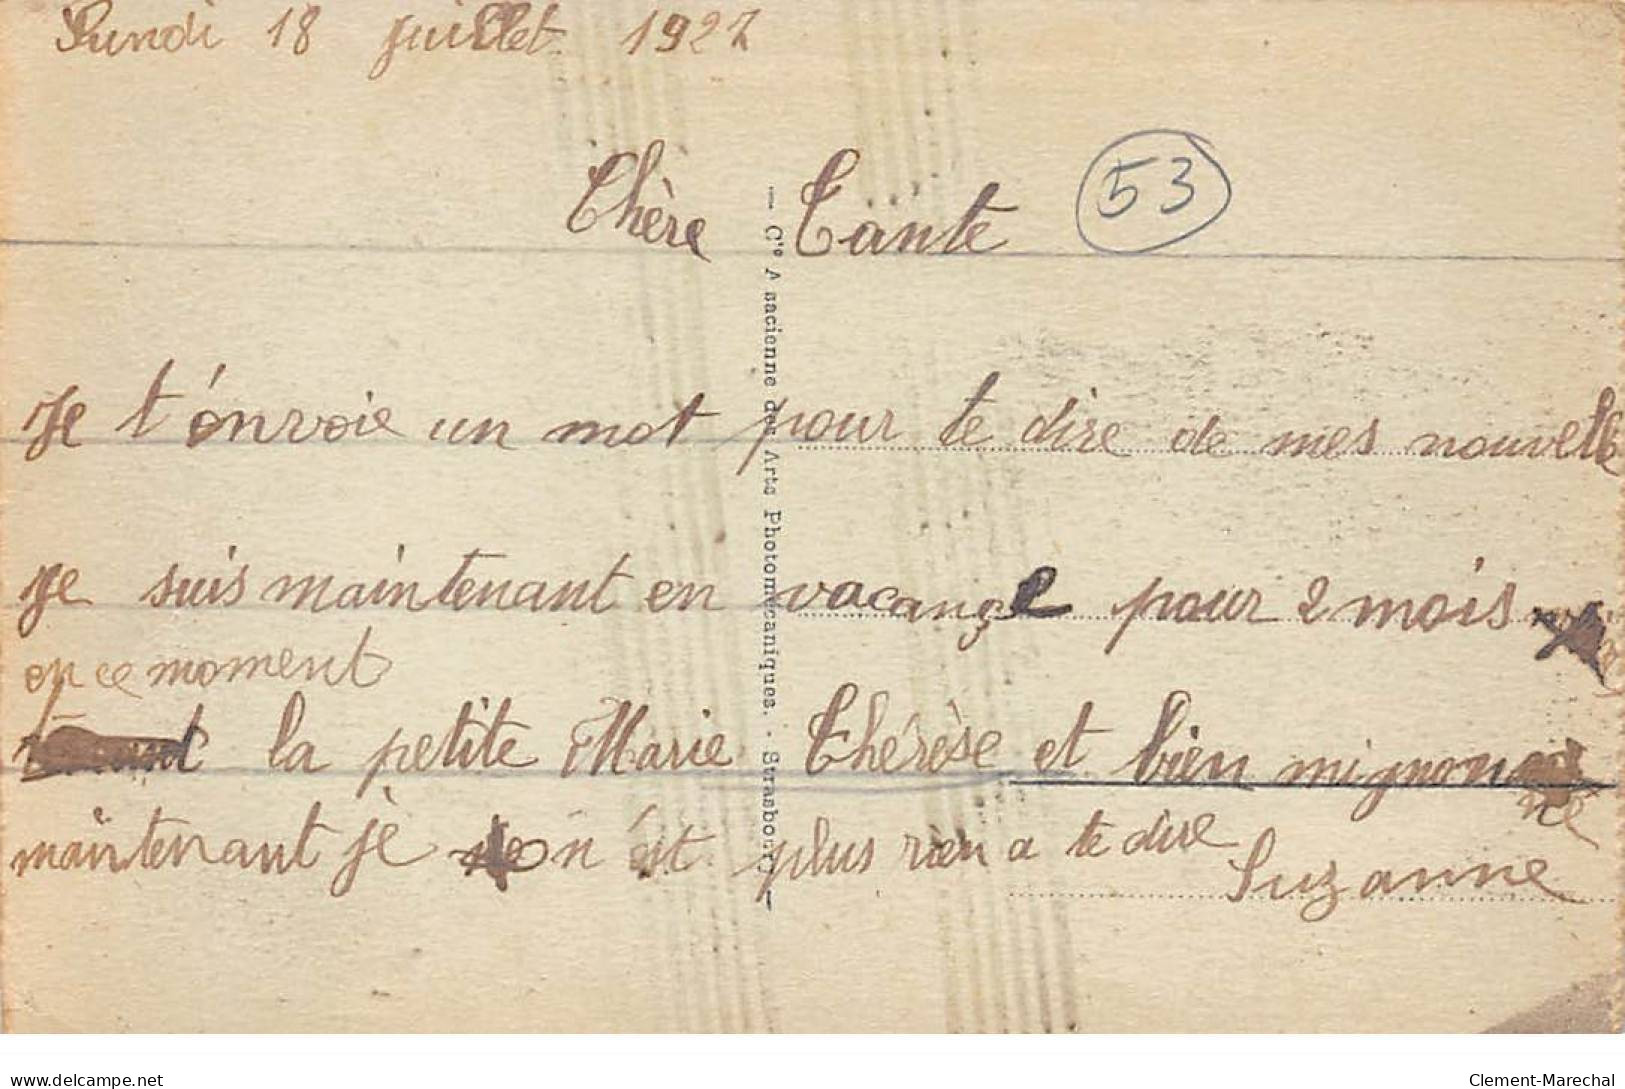 Lundi 18 juillet 1927
53
Chère Tante
Je t'énvoie un mot pour te dire de mes nouvelle
Je suis maintenant en vacançe pour 2 mois
en ce moment
la petite Marie Thérèse et bien mignon
ne
maintenant je n'est plus rien a te dire
Suzanne
— Cie A sacienne des Arts Photomécaniques. - Strasbourg —
www.delcampe.net
Clement-Marechal